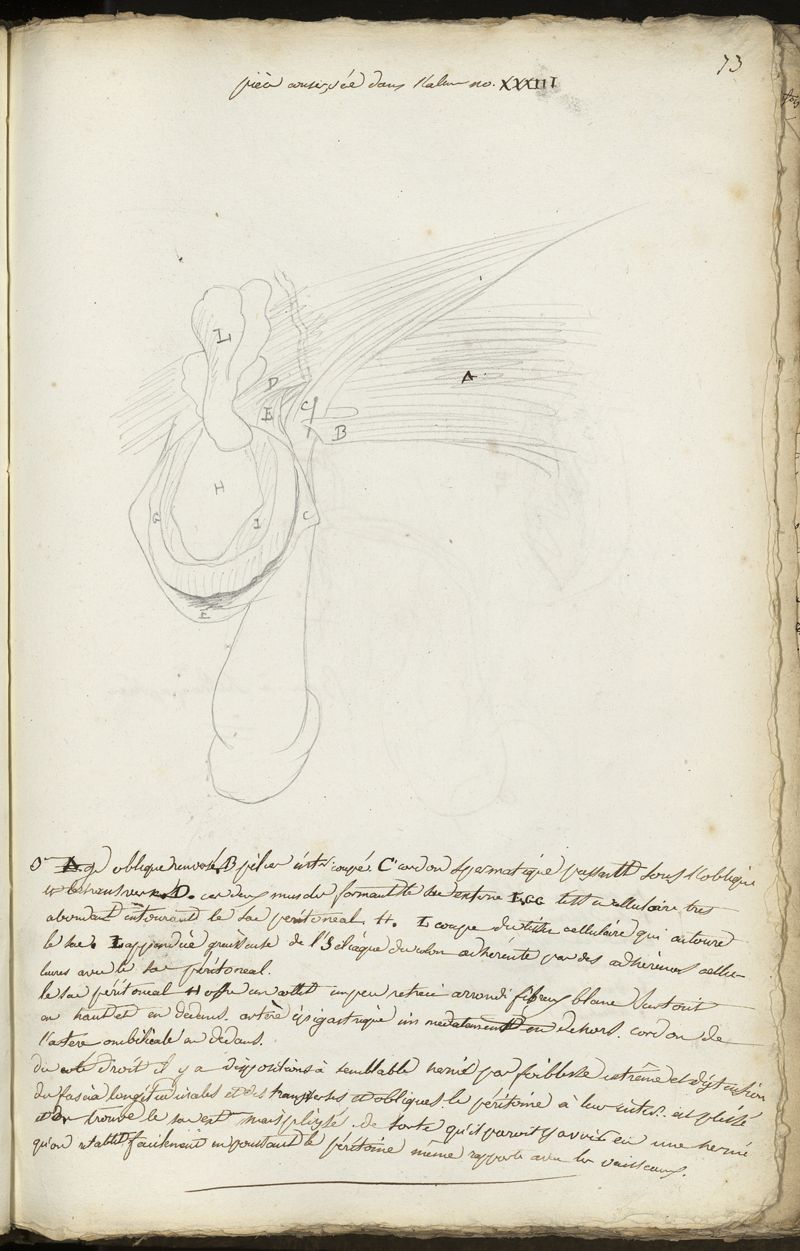 73
pièce conservée dans l'alun no. XXXIII
L
D
E
C
A
B
H
G
I
C
E
A. gd oblique renversé. B pilier intr coupé. C cordon spermatique passant sous l'oblique
et le transverse. D. ces deux muscles formant le sac externe EGG tissu cellulaire très
abondant entourant le sac péritoneal. H. I coupe du tissu cellulaire qui entoure
le sac. L appendice graisseuse de l'S iliaque du colon adhérente par des adhérences cellu
laires avec le sac péritoneal.
le sac péritoneal H offre un collet un peu retreci arrondi fibreux blanc surtout
en haut et en dedans. artère épigastrique immediatement en dehors. cordon de
l'artere ombilicale en dedans.
du coté droit il y a disposition à semblable hernie par foiblesse extrême et distension
du fascia longitudinales et des transverses et obliques. le péritoine à leur
trouve le sac est mais plissé. de sorte qu'il paroit y avoir eu une hernie
qu'on établit facilement en poussant le péritoine même rapports avec les vaisseaux.